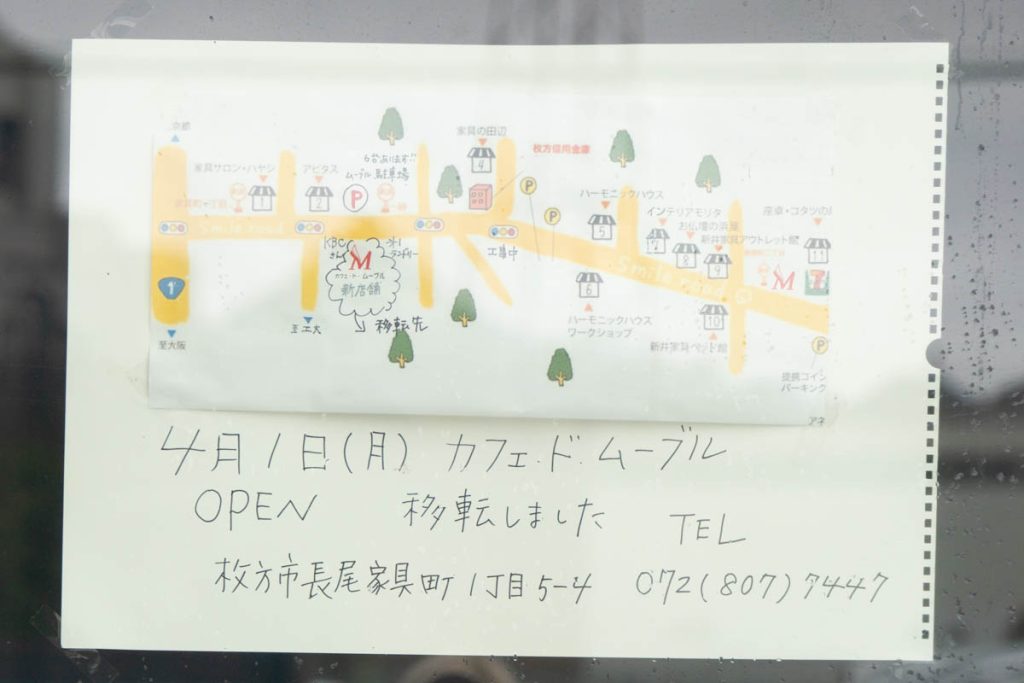 京都
家具の田辺
4
枚方信用金庫
家具サロン・ハヤシ
1
アビタス
2
6台あります!!
ムーブル駐車場
P
P
P
ハーモニックハウス
5
インテリアモリタ
お仏壇の浜屋
8
新井家具アウトレット館
9
座卓・コタツの
11
Smile road
KBC
さん
M
カフェ・ド・ムーブル
新店舗
コイン
ランドリー
工事中
Smile road
M
7
1
6
10
至大阪
至工大
移転先
ハーモニックハウス
ワークショップ
新井家具ベッド館
P
提携コイン
パーキング
アネ
4月1日(月) カフェ・ド・ムーブル
OPEN 移転しました TEL
枚方市長尾家具町1丁目5-4 072(807)7447